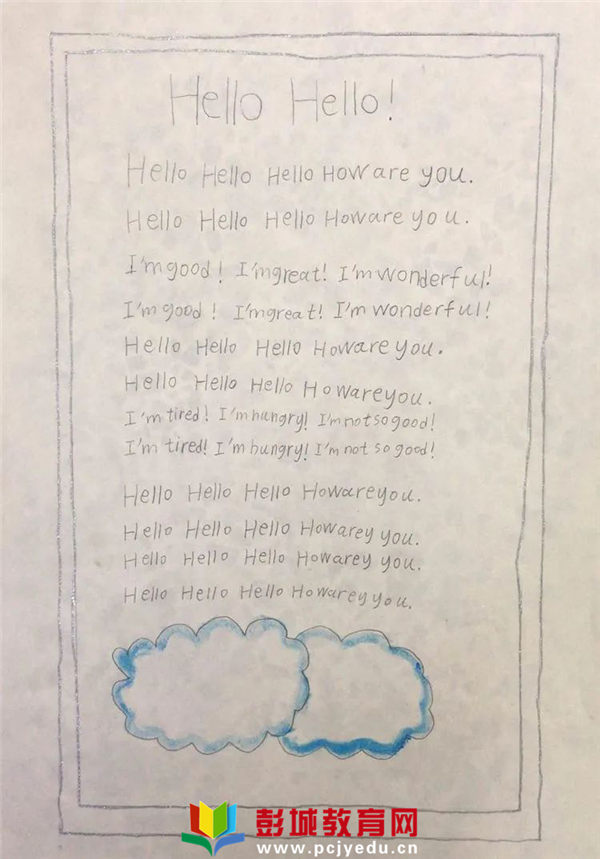 Hello Hello!
Hello Hello Hello How are you.
Hello Hello Hello How are you.
I'm good! I'm great! I'm wonderful!
I'm good! I'm great! I'm wonderful!
Hello Hello Hello How are you.
Hello Hello Hello How are you.
I'm tired! I'm hungry! I'm not so good!
I'm tired! I'm hungry! I'm not so good!
Hello Hello Hello How are you.
Hello Hello Hello Howarey you.
Hello Hello Hello Howarey you.
Hello Hello Hello Howarey you.
彭城教育网
www.pcjyedu.cn